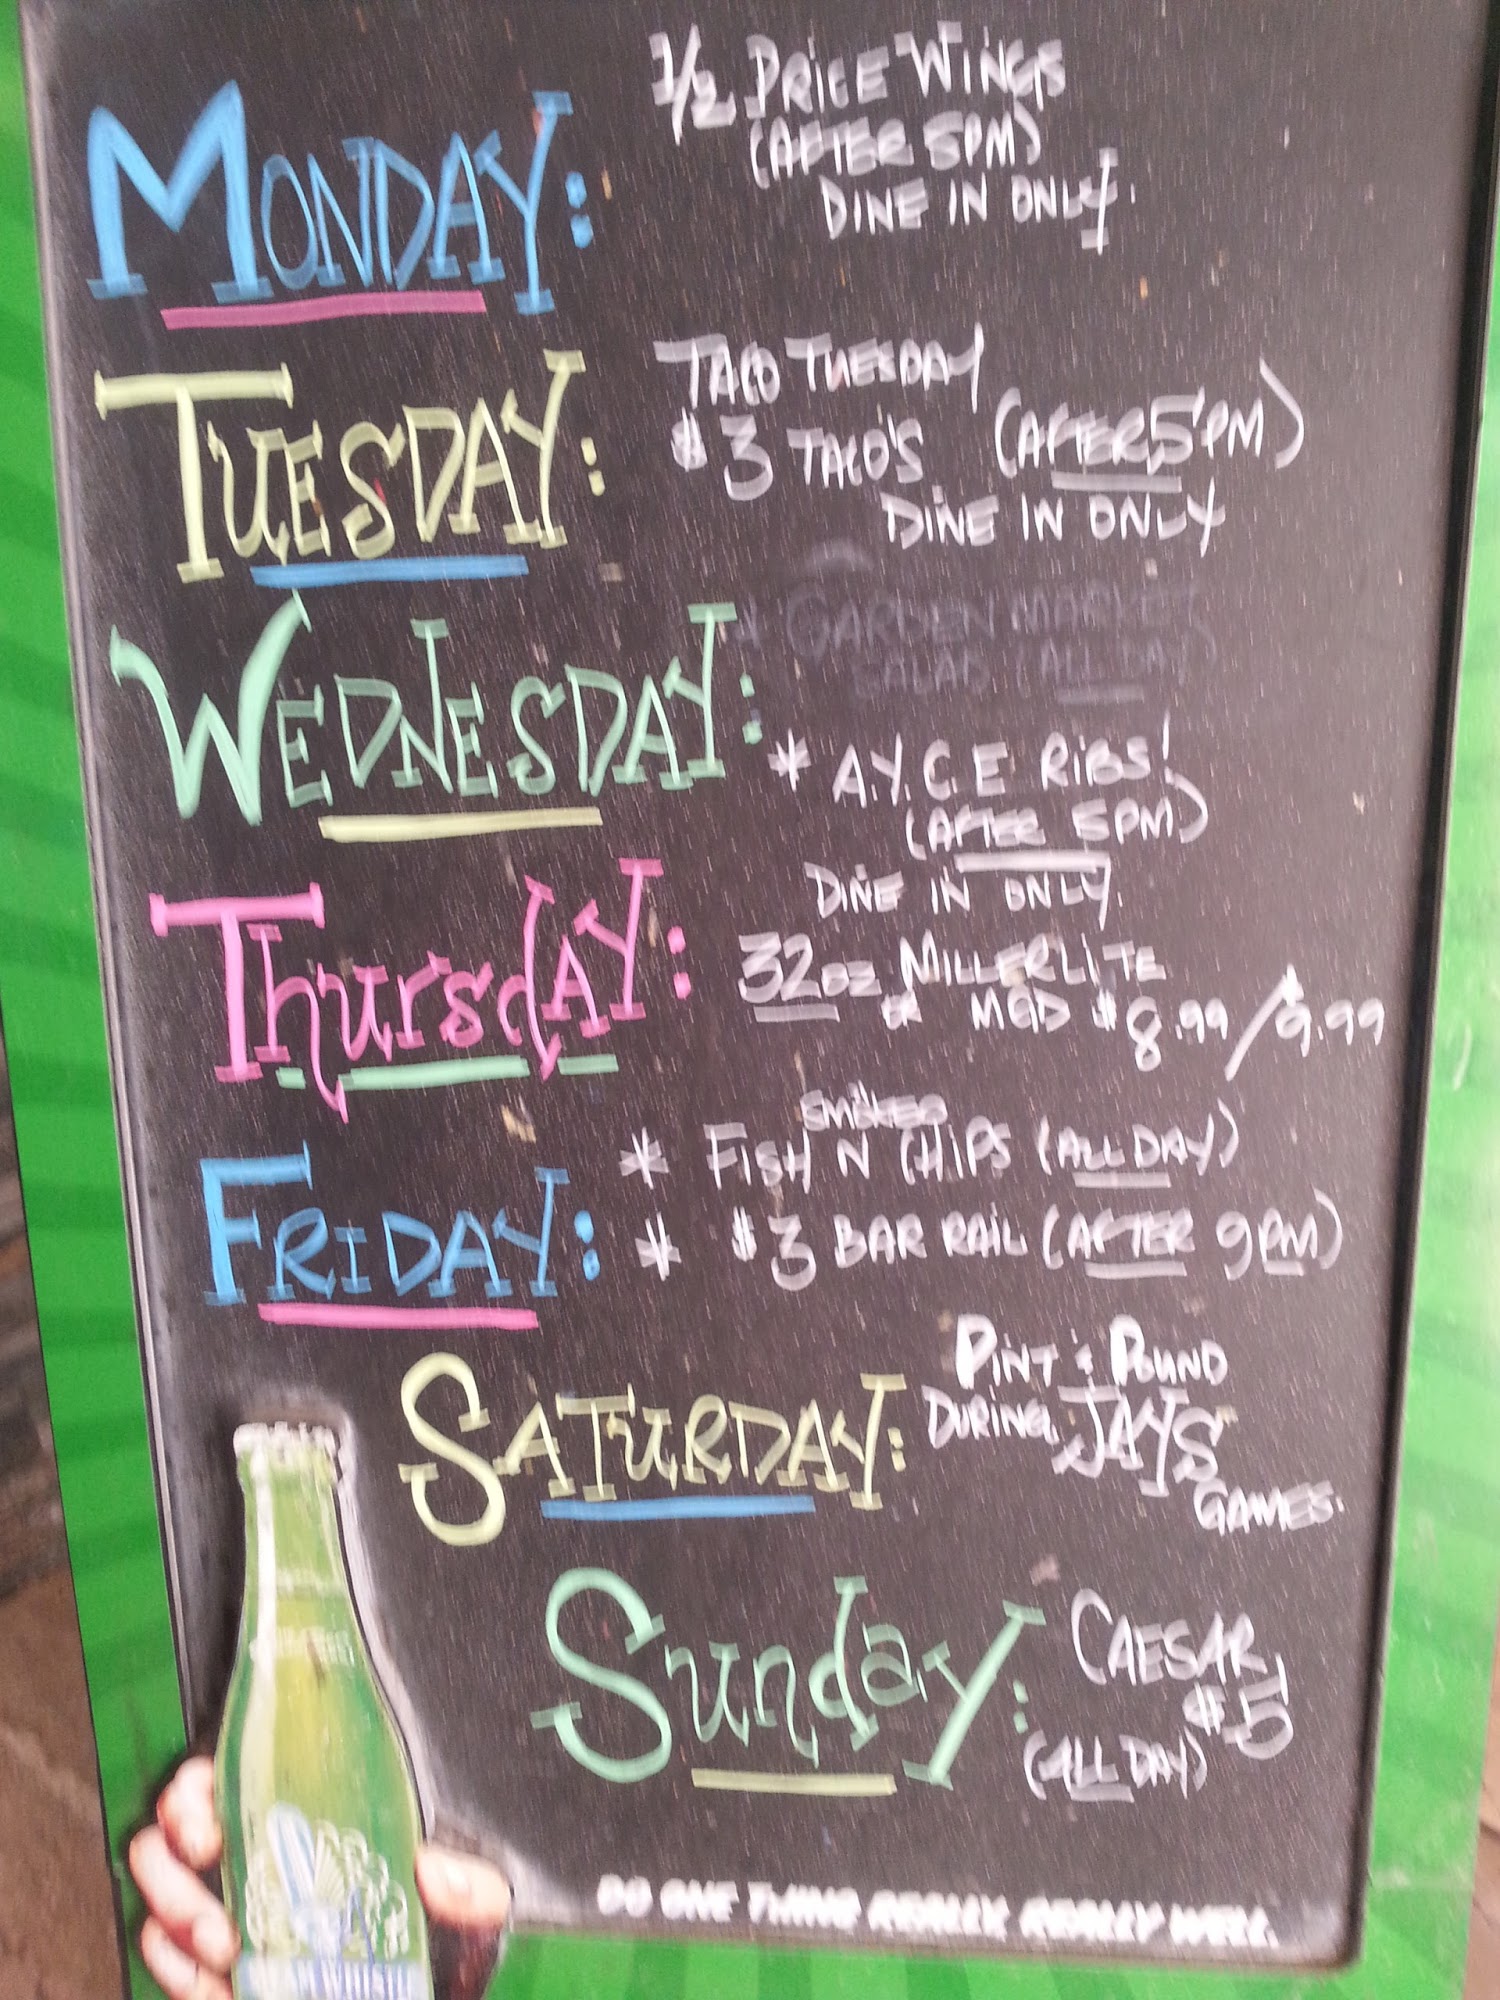 MONDAY:
1/2 PRICE WINGS
(AFTER 5PM)
DINE IN ONLY.
TUESDAY:
TACO TUESDAY
$3 TACO'S (AFTER 5PM)
DINE IN ONLY
WEDNESDAY:
* GARDEN MARKET
SALAD (ALL DAY)
* A.Y.C.E RIBS!
(AFTER 5PM)
DINE IN ONLY.
THURSDAY:
32oz MILLERLITE
or MGD $8.99/$9.99
FRIDAY:
SMOKED
* FISH N CHIPS (ALL DAY)
* $3 BAR RAIL (AFTER 9PM)
SATURDAY:
PINT & POUND
DURING JAYS
GAMES.
SUNDAY:
CAESAR
$5
(ALL DAY)
DO ONE THING REALLY, REALLY WELL.